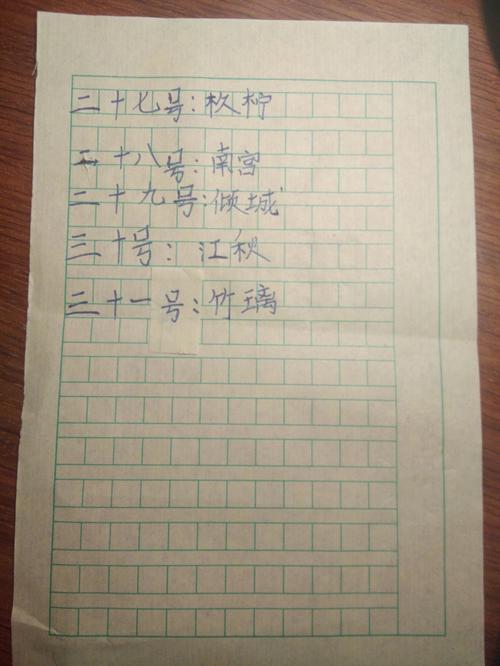 二十七号:枚柠
二十八号:南宫
二十九号:倾城
三十号:江秋
三十一号:竹璃